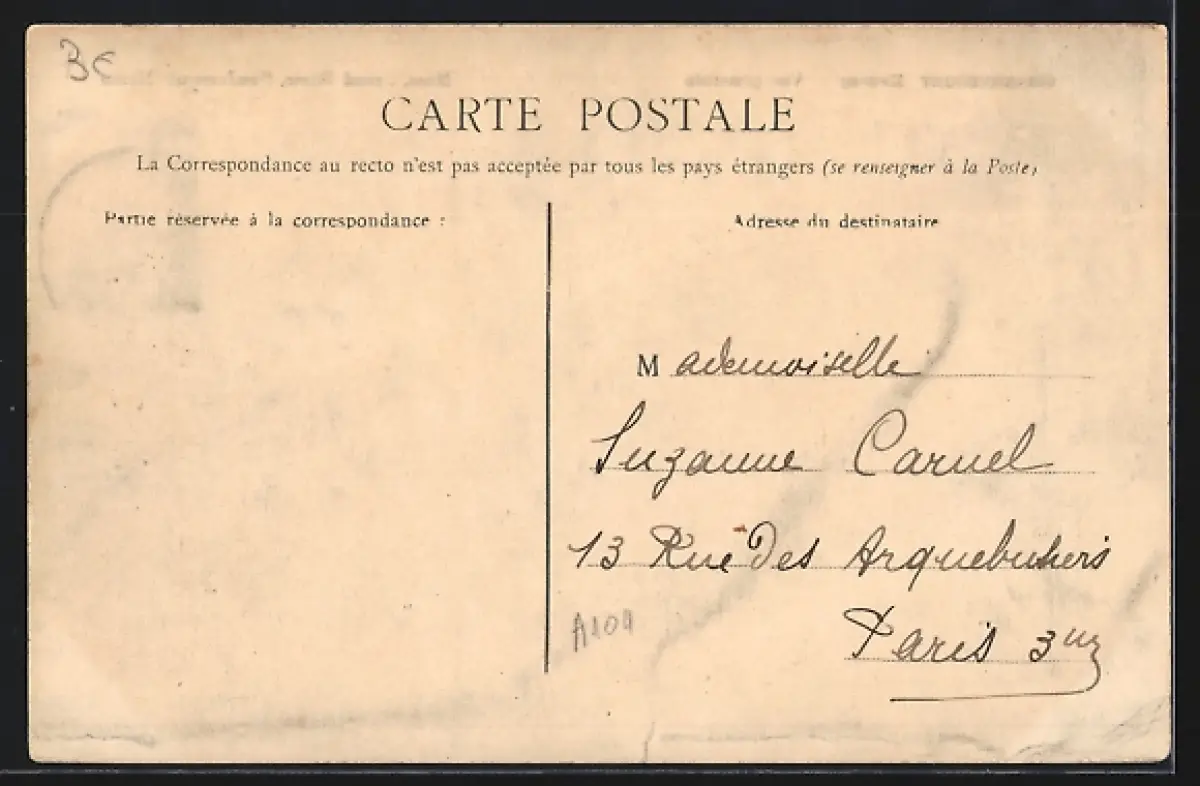 3€
CARTE POSTALE
La Correspondance au recto n'est pas acceptée par tous les pays étrangers (se renseigner à la Poste)
Partie réservée à la correspondance :
Adresse du destinataire
Mademoiselle
Suzanne Caruel
13 Rue Des Arquebusiers
A109
Paris 3